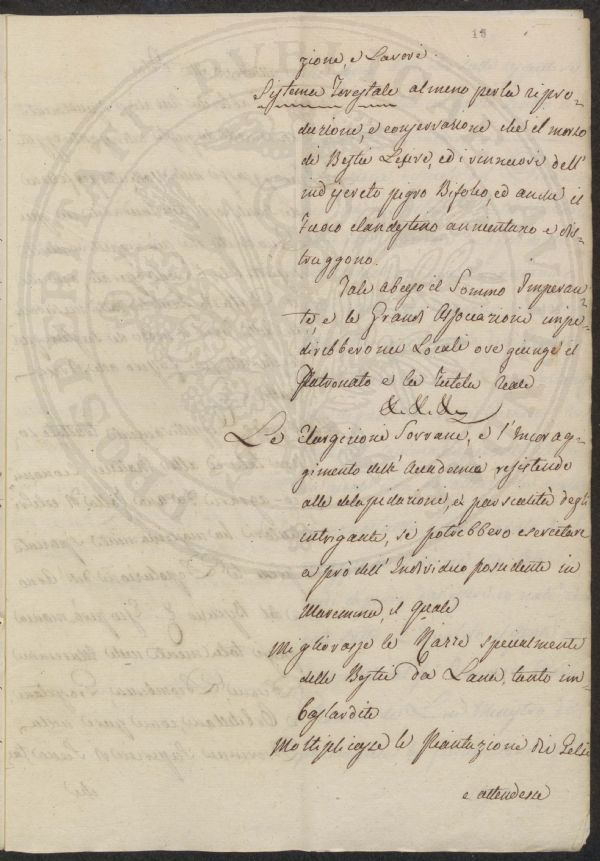 18
zione, e Lavori.
Sistema Forestale almeno per la ripro=
duzione, e conservazione che il morso
di Bestie Lesive, ed i rinnuovi dell'
indiscreto pigro Bifolco, ed anche il
Fuoco clandestino annientano e dis=
truggono.
Tale abuso il Sommo Imperan=
te, e le Grandi Associazioni impe=
direbbero nei Locali ove giunge il
Patronato e la Tutela reale
&. &. &.
Le Elargizioni Sovrane, e l'Incorag=
gimento dell'Accademia resistendo
alle delapidazioni, e parzialità degl'
intriganti, si potrebbero esercitare
a prò dell'Individuo possidente in
Maremma, il quale
Migliorasse le Razze specialmente
delle Bestie da Lana, tanto im=
bastardite
Moltiplicasse le Piantazioni di Gelsi
e attendesse